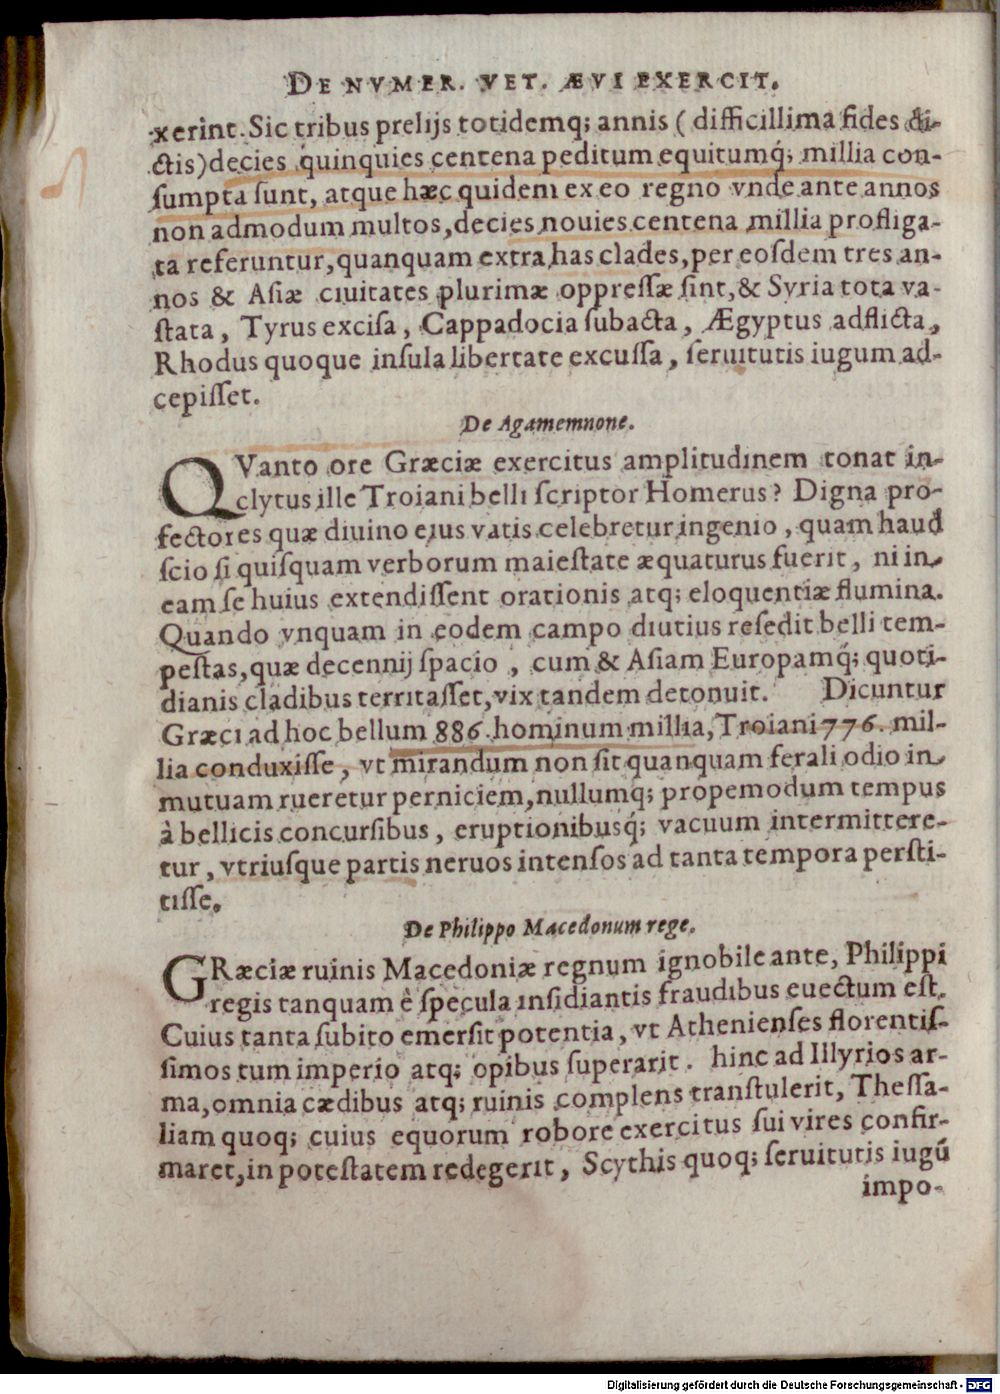 DE NVMER. VET. ÆVI EXERCIT.
xerint. Sic tribus prelijs totidemq; annis ( difficillima fides di-
ctis) decies quinquies centena peditum equitumq́; millia con-
sumpta sunt, atque hæc quidem ex eo regno vnde ante annos
non admodum multos, decies nouies centena millia profliga-
ta referuntur, quanquam extra has clades, per eosdem tres an-
nos & Asiæ ciuitates plurimæ oppressæ sint, & Syria tota va-
stata, Tyrus excisa, Cappadocia subacta, Ægyptus adflicta,
Rhodus quoque insula libertate excussa, seruitutis iugum ad-
cepisset.
De Agamemnone.
QVanto ore Græciæ exercitus amplitudinem tonat in-
clytus ille Troiani belli scriptor Homerus? Digna pro-
fecto res quæ diuino ejus vatis celebretur ingenio, quam haud
scio si quisquam verborum maiestate æquaturus fuerit, ni in
eam se huius extendissent orationis atq; eloquentiæ flumina.
Quando vnquam in eodem campo diutius resedit belli tem-
pestas, quæ decennij spacio, cum & Asiam Europamq́; quoti-
dianis cladibus territasset, vix tandem detonuit. Dicuntur
Græci ad hoc bellum 886. hominum millia, Troiani 776. mil-
lia conduxisse, vt mirandum non sit quanquam ferali odio in
mutuam rueretur perniciem, nullumq; propemodum tempus
à bellicis concursibus, eruptionibusq́; vacuum intermittere-
tur, vtriusque partis neruos intensos ad tanta tempora persti-
tisse.
De Philippo Macedonum rege.
GRæciæ ruinis Macedoniæ regnum ignobile ante, Philippi
regis tanquam è specula insidiantis fraudibus euectum est.
Cuius tanta subito emersit potentia, vt Athenienses florentis-
simos tum imperio atq; opibus superarit. hinc ad Illyrios ar-
ma, omnia cædibus atq; ruinis complens transtulerit, Thessa-
liam quoq; cuius equorum robore exercitus sui vires confir-
maret, in potestatem redegerit, Scythis quoq; seruitutis iugū
impo-
Digitalisierung gefördert durch die Deutsche Forschungsgemeinschaft - DFG